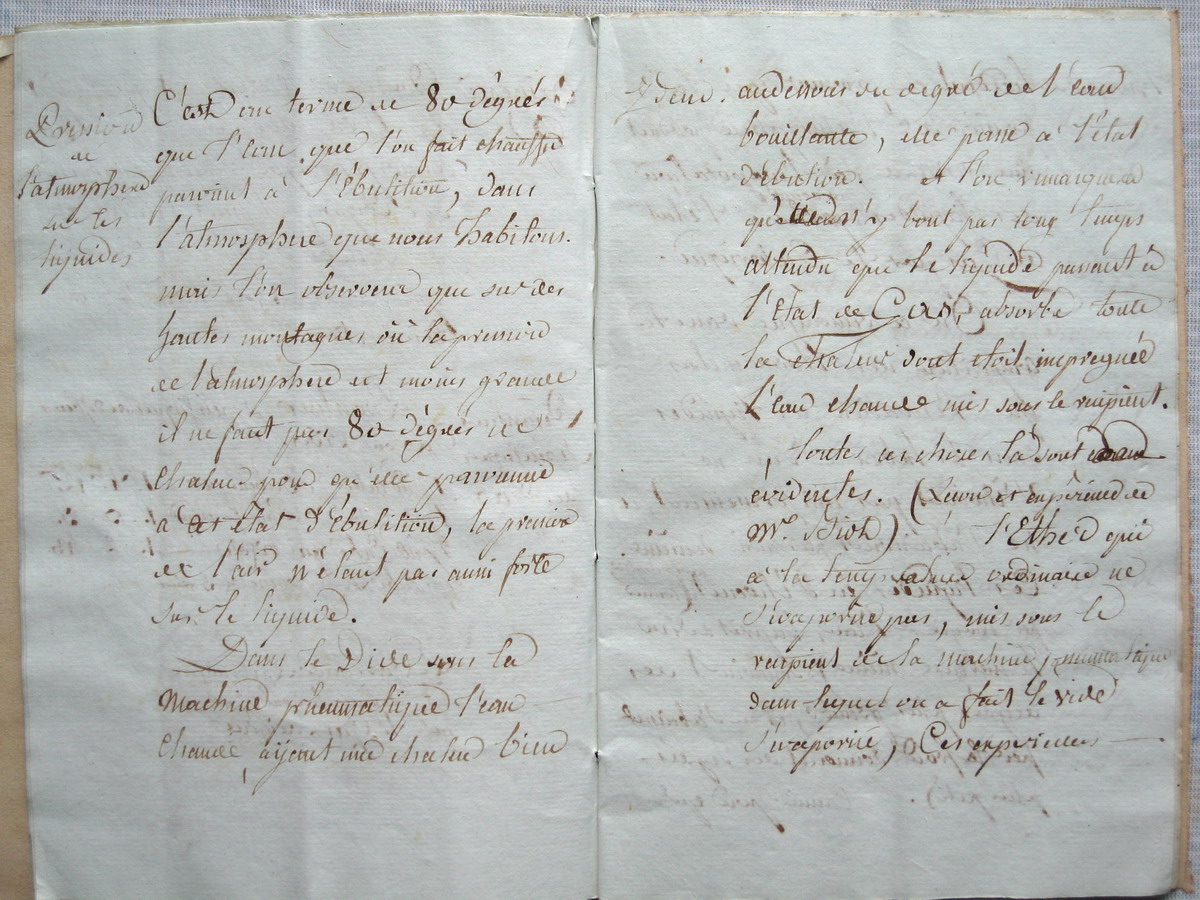 Pression
de
l'atmosphere
sur les
liquides
C'est au terme de 80 dégrés
que l'eau que l'on fait chauffer
parvient à l'Ebulition, dans
l'atmosphere que nous habitons.
mais l'on observera que sur des
hautes montagnes où la pression
de l'atmosphere est moins grande
il ne faut pas 80 dégrés de
chaleur pour qu'elle parvienne
à cet état d'Ebulition, la pression
de l'air n'étant pas aussi forte
sur le liquide.
Dans le Vide sous la
Machine pheumatique l'eau
chaude aÿant une chaleur bien
Idem. audessous du dégré de l'eau
bouillante, elle passe à l'état
d'ébulition. et l'on remarquera
qu'elle n'y bout pas long temps
attendu que le liquide passant à
l'Etat de Gas, absorbe toute
la chaleur dont etoit impregnée
l'eau chaude mis sous le recipient.
toutes ces choses là sont
évidentes. (Leçon et expérience de
Mr. Biot) l'Ether qui
à la température ordinaire ne
s'évaporise pas, mis sous le
recipient de la machine pneumatique
dans lequel on a fait le vide
s'évaporise, Ces experiences